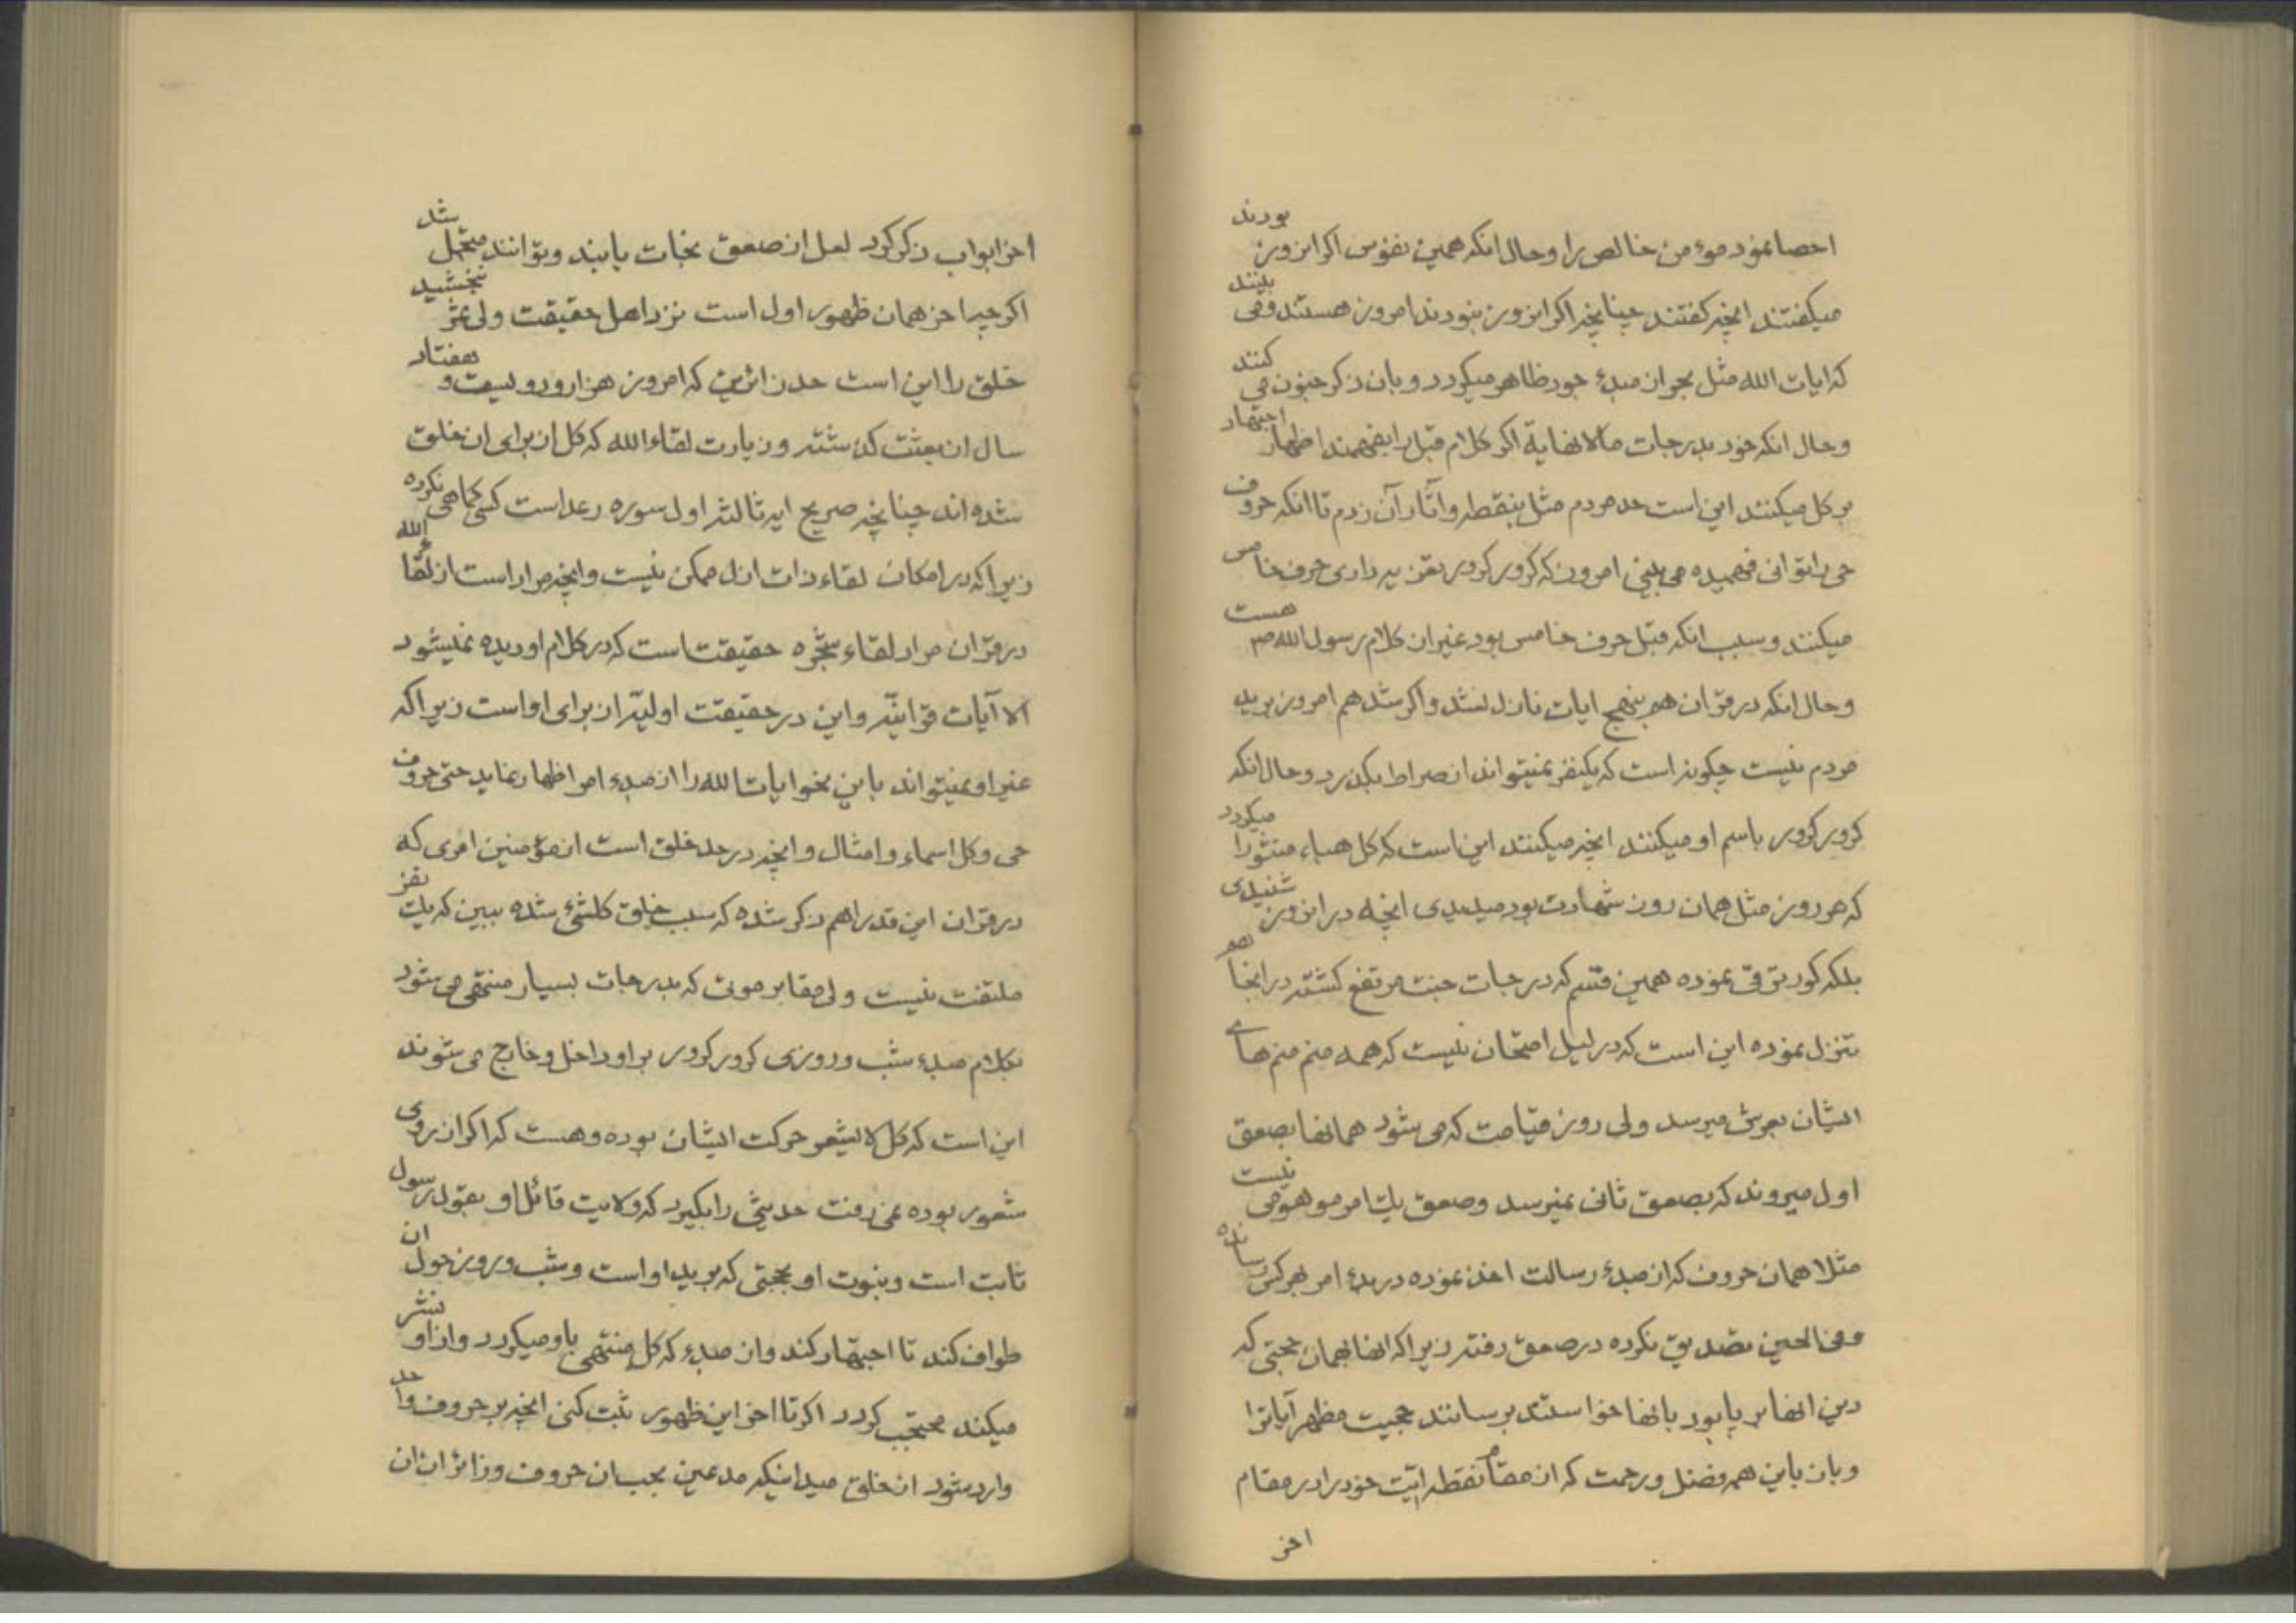 احصا نمود مؤمن خالص را و حال انکه همین نفوس اکر انروز بودند
میکفتند انچه کفتند چنانچه اکر انروز نبودند امروز هستند و می بینند
که ایات الله مثل بحر از مبدء جود ظاهر میکردد و بان ذکر جنون می کنند
و حال انکه خود بدرجات مالانهایة اکر کلام قبل را بفهمند اظهار اجتهاد
بر کل میکنند این است حد مردم مثل بنقطه و اثار آن زدم تا انکه حروف
حی را توانی فهمیده می بینی امروز که کرور کرور تعزیه داری حرف خامس
میکنند و سبب انکه قبل حرف خامس بود غیر از کلام رسول الله ص هست
و حال انکه در قران هم بنهج ایات نازل نشد و اکر شد هم امروز بر ید
مردم نیست چکونه است که یکنفر نمیتواند از صراط بکذرد و حال انکه
کرور کرور باسم او میکنند انچه میکنند این است که کل هباء منثورا میکردد
که هر روز مثل همان روز شهادت بود میدیدی انچه در انروز شنیدی
بلکه کور ترقی نموده همین قسم که درجات جنت مرتفع کشته در انجا هم
تنزل نموده این است که در لیل امتحان نیست که همه منم منم های
ایشان بعرش میرسد ولی روز قیامت که می شود همانها بصعق
اول میروند که بصعق ثانی نمیرسد و صعق یک امر موهومی نیست
مثلا همان حروف که از مبدء رسالت اخذ نموده در بدء امر بهر کس رسانده
و فی الحین تصدیق نکرده در صعق رفته زیرا که انها بهمان حجتی که
دین انها بر پا بود بانها خواستند برسانند حجیت مظهر آیاترا
و بان باین همه فضل و رحمت که از مقام نقطه ایّت خود را در مقام
اخر
اخر ابواب ذکر کرد لعل از صعق نجات یابند و بتوانند متحمل شد
اکر چه اخر همان ظهور اول است نزد اهل حقیقت ولی ثمر نبخشید
خلق را این است حد زائرین که امروز هزار و دویست و هفتاد
سال از بعثت کذشته و زیارت لقاء الله که کل از برای ان خلق
شده اند چنانچه صریح ایه ثالثه اول سوره رعد است کسی کماهی نکرده
زیرا که در امکان لقاء ذات ازل ممکن نیست و انچه مراد است از لقاء الله
در قران مراد لقاء شجره حقیقت است که در کلام او دیده نمیشود
الا آیات قرانیّه و این در حقیقت اولیّه از برای او است زیرا که
غیر او نمیتواند باین نحو ایات الله را از مبدء امر اظهار نماید حتی حروف
حی و کل اسماء و امثال و انچه در حد خلق است از مؤمنین امری که
در قران این قدر اهم ذکر شده که سبب خلق کلشئ شده ببین که یک نفر
ملتفت نیست ولی مقابر موتی که بدرجات بسیار منتهی می شود
بکلام مبدء شب و روزی کرور کرور بر او داخل و خارج می شوند
این است که کل لایشعر حرکت ایشان بوده و هست که اکر از روی
شعور بوده نمی رفت حدیثی را بکیرد که ولایت قائل او بقول رسول
ثابت است و نبوت او بحجتی که بر ید او است و شب و روز حول ان
طواف کند تا اجتهاد کند و از مبدء که کل منتهی باو میکردد و از او نشر
میکند محتجب کردد اکر تا اخر این ظهور ثبت کنی انچه بر حروف واحد
وارد شود از خلق میدانیکه مدعین بحب ان حروف و زائران ان